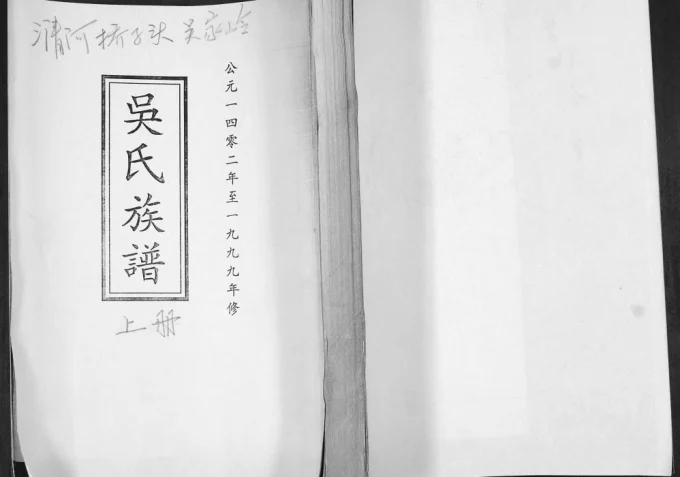 清河桥子头吴家岭
公元一四零二年至一九九九年修
吳氏族譜
上册